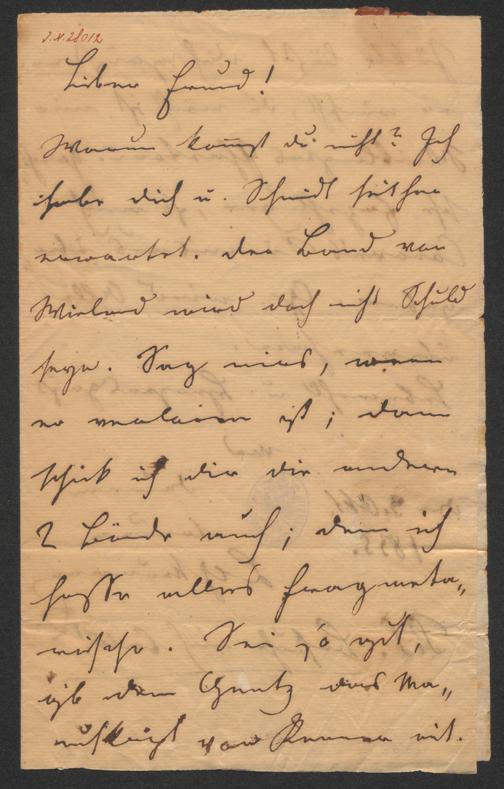 J.N. 28012
Lieber Freund!
Warum kom̄st du nicht? Ich
habe dich u. Schmidt seither
erwartet. der Band von
Wieland wird doch nicht Schuld
seyn. Sag mirs, wenn
er verloren ist; dann
schick ich dir die andern
2 Bände auch; denn ich
hasse alles fragmenta„
rische. Sei so gut,
gib dem das Ma„
nuskript von mit.